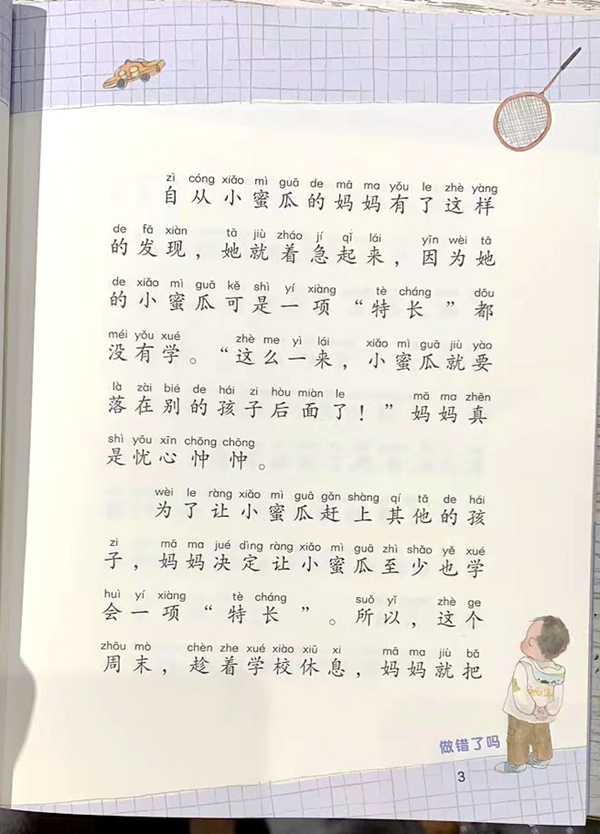 zì cóng xiǎo mì guā de mā ma yǒu le zhè yàng
自从小蜜瓜的妈妈有了这样
de fā xiàn tā jiù zháo jí qǐ lái yīn wèi tā
的发现，她就着急起来，因为她
de xiǎo mì guā kě shì yí xiàng tè cháng dōu
的小蜜瓜可是一项“特长”都
méi yǒu xué zhè me yì lái xiǎo mì guā jiù yào
没有学。“这么一来，小蜜瓜就要
là zài bié de hái zi hòu miàn le mā ma zhēn
落在别的孩子后面了！”妈妈真
shì yōu xīn chōng chōng
是忧心忡忡。
wèi le ràng xiǎo mì guā gǎn shàng qí tā de hái
为了让小蜜瓜赶上其他的孩
zi mā ma jué dìng ràng xiǎo mì guā zhì shǎo yě xué
子，妈妈决定让小蜜瓜至少也学
huì yí xiàng tè cháng suǒ yǐ zhè ge
会一项“特长”。所以，这个
zhōu mò chèn zhe xué xiào xiū xi mā ma jiù bǎ
周末，趁着学校休息，妈妈就把
做错了吗
3